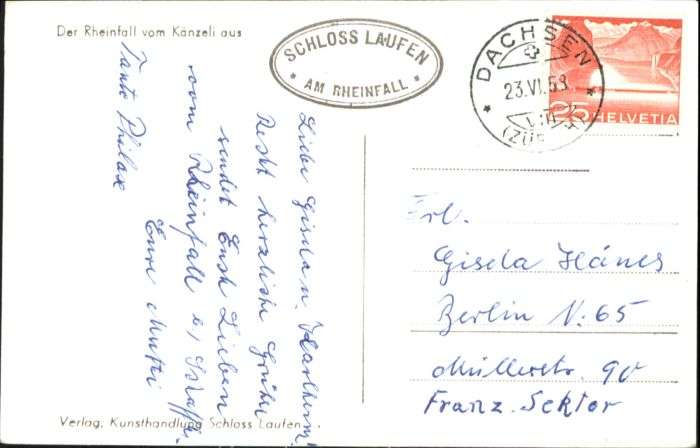 Der Rheinfall vom Känzeli aus
SCHLOSS LAUFEN
AM RHEINFALL
DACHSEN
23.VI.53.
(ZÜRICH)
25
HELVETIA
Liebe Gisela u. Karlheinz
Recht herzliche Grüße
sendet Euch Lieben
vom Rheinfall b/ Schaffh.
Eure Mutti
Tante Philax
Frl.
Gisela Hänes
Berlin N. 65
Müllerstr. 90
Franz. Sektor
Verlag: Kunsthandlung Schloss Laufen